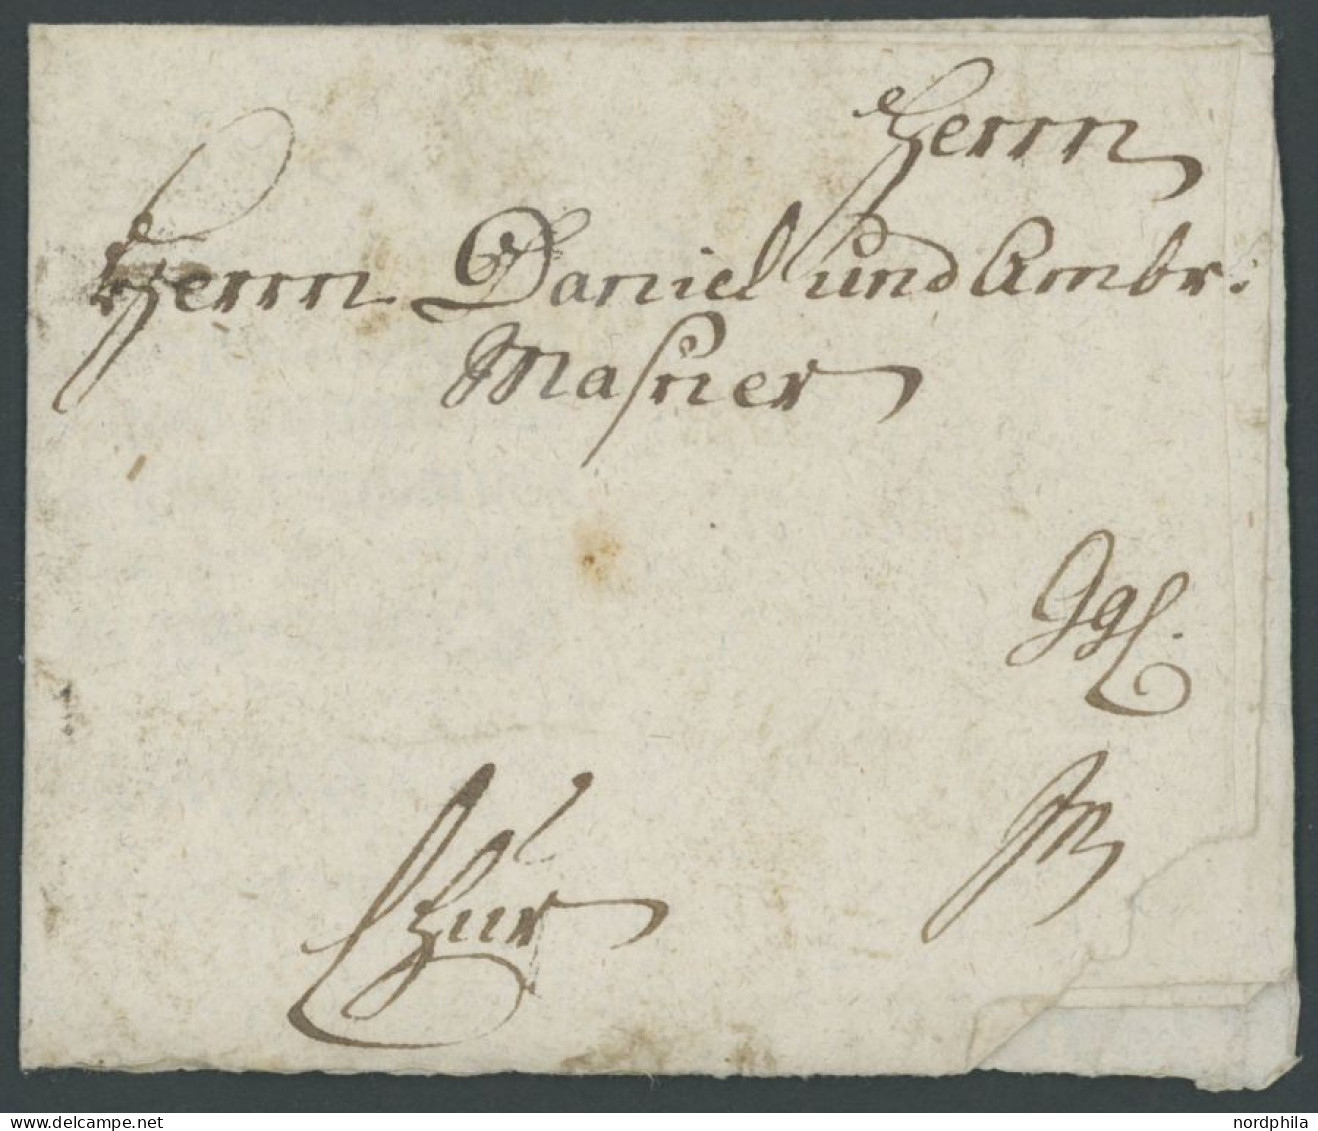 Herrn
Herrn Daniel und Ambr:
Masner
Chur
nordphila